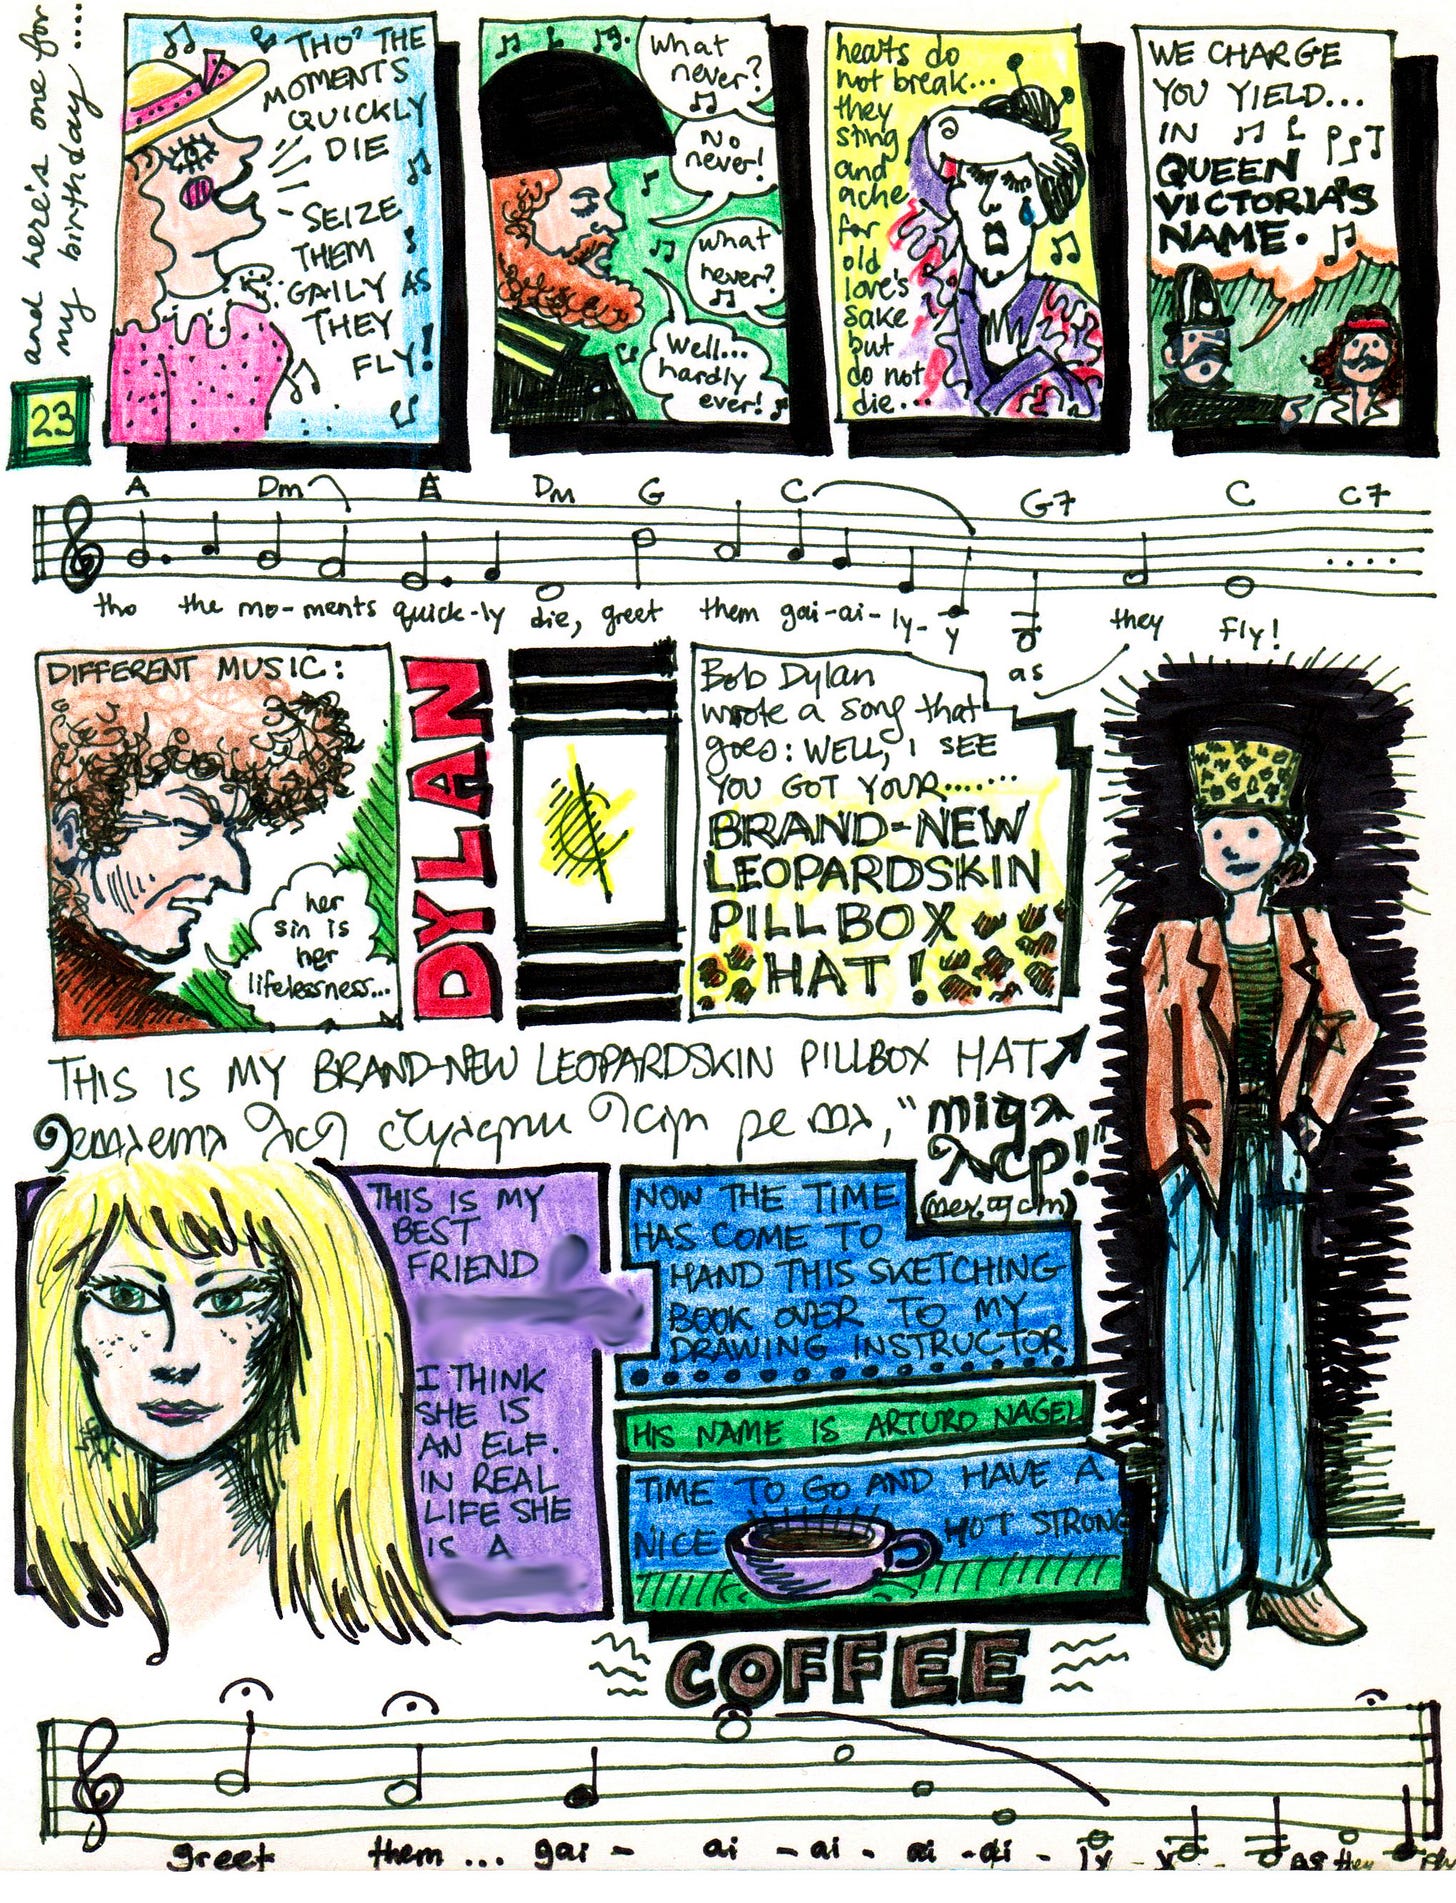 and here's one for
my birthday ....
23
THO' THE
MOMENTS
QUICKLY
DIE
SEIZE
THEM
GAILY AS
THEY
FLY!
what
never?
No
never!
what
never?
Well...
hardly
ever!
hearts do
not break...
they
sting
and
ache
for
old
love's
sake
but
do not
die...
WE CHARGE
YOU YIELD...
IN
QUEEN
VICTORIA'S
NAME.
A Dm A Dm G C G7 C C7
tho the mo-ments quick-ly die, greet them gai-ai-ly-y as they fly!
DIFFERENT MUSIC:
her
sin is
her
lifelessness...
DYLAN
Bob Dylan
wrote a song that
goes: WELL, I SEE
YOU GOT YOUR......
BRAND-NEW
LEOPARDSKIN
PILLBOX
HAT!
THIS IS MY BRAND-NEW LEOPARDSKIN PILLBOX HAT
THIS IS MY
BEST
FRIEND
I THINK
SHE IS
AN ELF.
IN REAL
LIFE SHE
IS A
NOW THE TIME
HAS COME TO
HAND THIS SKETCHING
BOOK OVER TO MY
DRAWING INSTRUCTOR
HIS NAME IS ARTURO NAGEL
TIME TO GO AND HAVE A
NICE HOT STRONG
COFFEE
greet them... gai - ai - ai - ai - ai - ly - y - as they